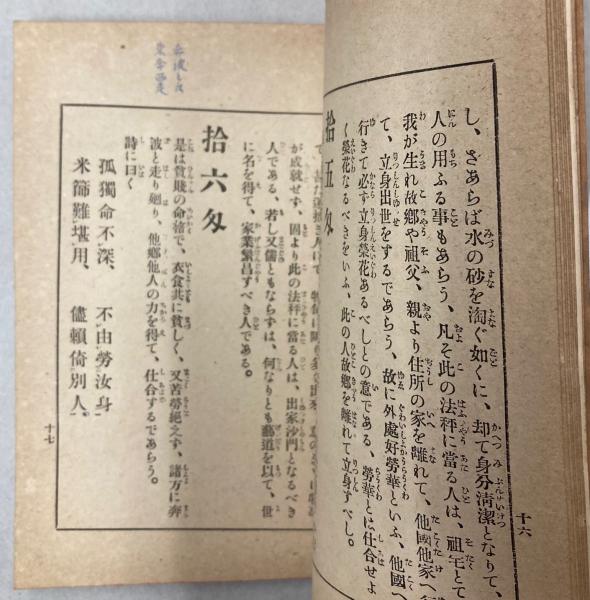 し、さあらば水の砂を淘ぐ如くに、却て身分清潔となりて、
人の用ふる事もあらう、凡そ此の法秤に當る人は、祖宅とて
我が生れ故郷や祖父、親より住所の家を離れて、他國他家へ
て、立身出世をするであらう、故に外處好勞華といふ、他國へ
行きて必ず立身榮花あるべしとの意である、勞華とは仕合せよ
く榮花なるべきをいふ、此の人故郷を離れて立身すべし。
拾五匁
十六
が成就せず、固より此の法秤に當る人は、出家沙門となるべき
人である、若し又儒ともならずは、何なりとも藝道を以て、世
に名を得て、家業繁昌すべき人である。
拾六匁
是は貧賤の命捨で、衣食共に貧しく、又苦勞絶えず、諸方に奔
波と走り廻り、他鄉他人の力を得て、仕合するであらう。
詩に曰く
孤獨命不深、 不由勞汝身
米篩難堪用、 儘賴倚別人。
十七